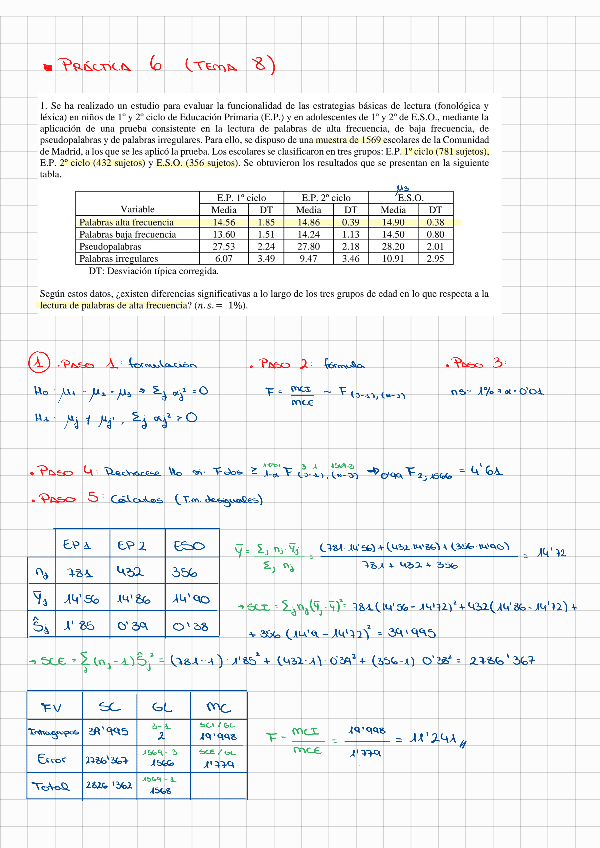 ▪ PRÁCTICA 6 (TEMA 8)
1. Se ha realizado un estudio para evaluar la funcionalidad de las estrategias básicas de lectura (fonológica y
léxica) en niños de 1º y 2º ciclo de Educación Primaria (E.P.) y en adolescentes de 1º y 2º de E.S.O., mediante la
aplicación de una prueba consistente en la lectura de palabras de alta frecuencia, de baja frecuencia, de
pseudopalabras y de palabras irregulares. Para ello, se dispuso de una muestra de 1569 escolares de la Comunidad
de Madrid, a los que se les aplicó la prueba. Los escolares se clasificaron en tres grupos: E.P. 1º ciclo (781 sujetos),
E.P. 2º ciclo (432 sujetos) y E.S.O. (356 sujetos). Se obtuvieron los resultados que se presentan en la siguiente
tabla.
μ3
E.P. 1º ciclo E.P. 2º ciclo E.S.O.
Variable Media DT Media DT Media DT
Palabras alta frecuencia 14.56 1.85 14.86 0.39 14.90 0.38
Palabras baja frecuencia 13.60 1.51 14.24 1.13 14.50 0.80
Pseudopalabras 27.53 2.24 27.80 2.18 28.20 2.01
Palabras irregulares 6.07 3.49 9.47 3.46 10.91 2.95
DT: Desviación típica corregida.
Según estos datos, ¿existen diferencias significativas a lo largo de los tres grupos de edad en lo que respecta a la
lectura de palabras de alta frecuencia? (n.s. = 1%).
① • PASO 1: formulación • PASO 2: fórmula • PASO 3:
H0: μ1 = μ2 = μ3 → Σj αj² = 0 F = MCI / MCE ~ F (J-1), (n-J) ns = 1% = α = 0'01
H1: μj ≠ μj', Σj αj² > 0
• PASO 4: Rechazase H0 si Fobs ≥ 1-α F (J-1), (n-J) → 0'99 F 2, 1566 = 4'61
• PASO 5: Cálculos (T.m. desiguales)
EP1 EP2 ESO
nj 781 432 356
Ȳj 14'56 14'86 14'90
Ŝj 1'85 0'39 0'38
Ȳ = Σj nj · Ȳj / Σj nj = (781·14'56)+(432·14'86)+(356·14'90) / 781 + 432 + 356 = 14'72
→ SCI = Σj nj (Ȳj - Ȳ)² = 781(14'56-14'72)² + 432(14'86-14'72) +
+ 356 (14'9 - 14'72)² = 39'995
→ SCE = Σj (nj - 1) Ŝj² = (781-1)·1'85² + (432-1)·0'39² + (356-1) 0'38² = 2786'367
FV SC GL MC
Intragupos 39'995 3-1 2 SCI/GL 19'998
Error 2786'367 1569-3 1566 SCE/GL 1'779
Total 2826'362 1569-1 1568
F = MCI / MCE = 19'998 / 1'779 = 11'241 //